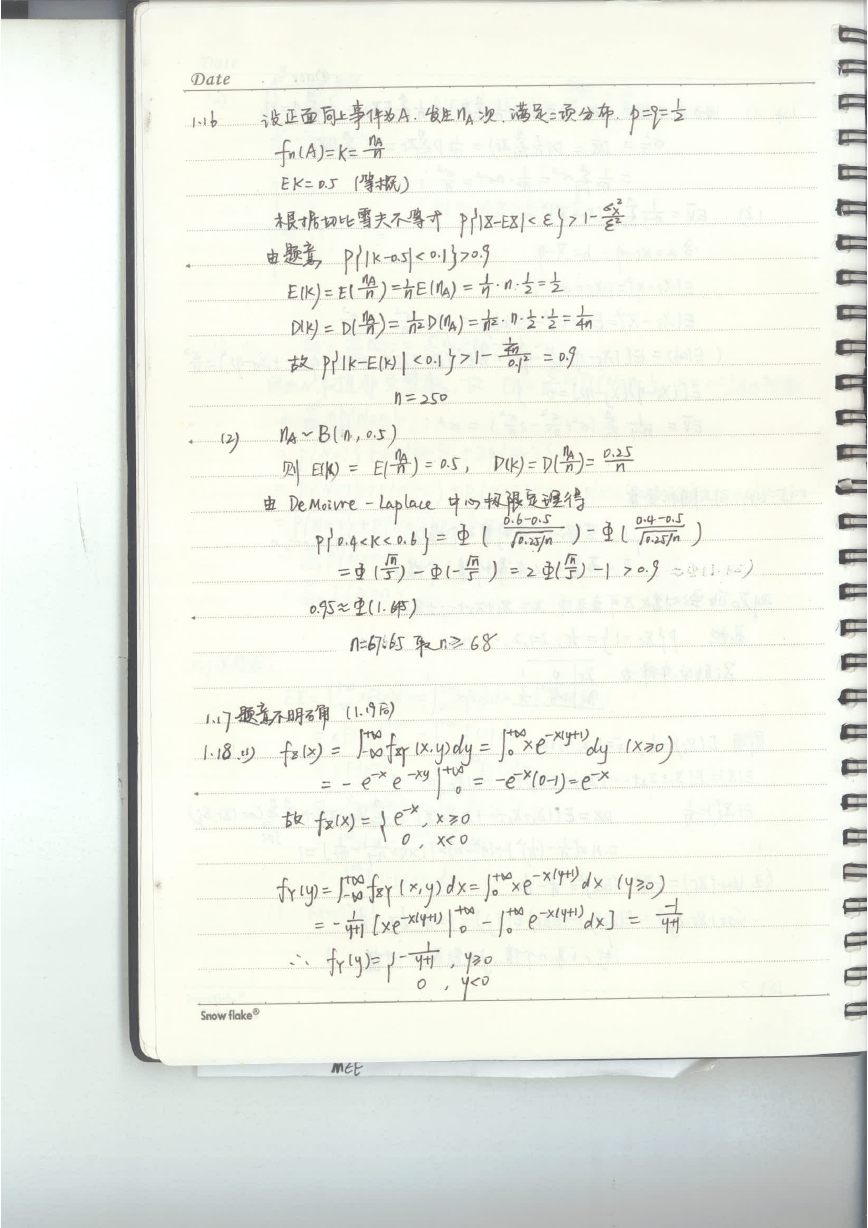 Date
1.16 设正面向上事件为A. 发生n_A次. 满足二项分布. p=q=1/2
f_n(A)=K=n_A/n
EK=0.5 (等概)
根据切比雪夫不等式 P{|X-EX|<ε}>1-σ_X²/ε²
由题意 P{|K-0.5|<0.1}>0.9
E(K)=E(n_A/n)=1/n E(n_A)=1/n·n·1/2=1/2
D(K)=D(n_A/n)=1/n² D(n_A)=1/n²·n·1/2·1/2=1/4n
故 P{|K-E(K)|<0.1}>1-(1/4n)/0.1²=0.9
n=250
(2) n_A~B(n,0.5)
则 E(K)=E(n_A/n)=0.5, D(K)=D(n_A/n)=0.25/n
由 DeMoivre-Laplace 中心极限定理得
P{0.4<K<0.6}=Φ((0.6-0.5)/√(0.25/n))-Φ((0.4-0.5)/√(0.25/n))
=Φ(√n/5)-Φ(-√n/5)=2Φ(√n/5)-1>0.9
0.95≈Φ(1.645)
n=67.65 取n≥68
1.17 题意不明确 (1.19同)
1.18.(1) f_X(x)=∫_{-∞}^{+∞}f_XY(x,y)dy=∫_0^{+∞}xe^{-x(y+1)}dy (x≥0)
=-e^{-x}e^{-xy}|_0^{+∞}=-e^{-x}(0-1)=e^{-x}
故 f_X(x)={e^{-x}, x≥0
0, x<0
f_Y(y)=∫_{-∞}^{+∞}f_XY(x,y)dx=∫_0^{+∞}xe^{-x(y+1)}dx (y≥0)
=-1/(y+1)[xe^{-x(y+1)}|_0^{+∞}-∫_0^{+∞}e^{-x(y+1)}dx]=-1/(y+1)
∴ f_Y(y)={-1/(y+1), y≥0
0, y<0
Snow flake®
MEE